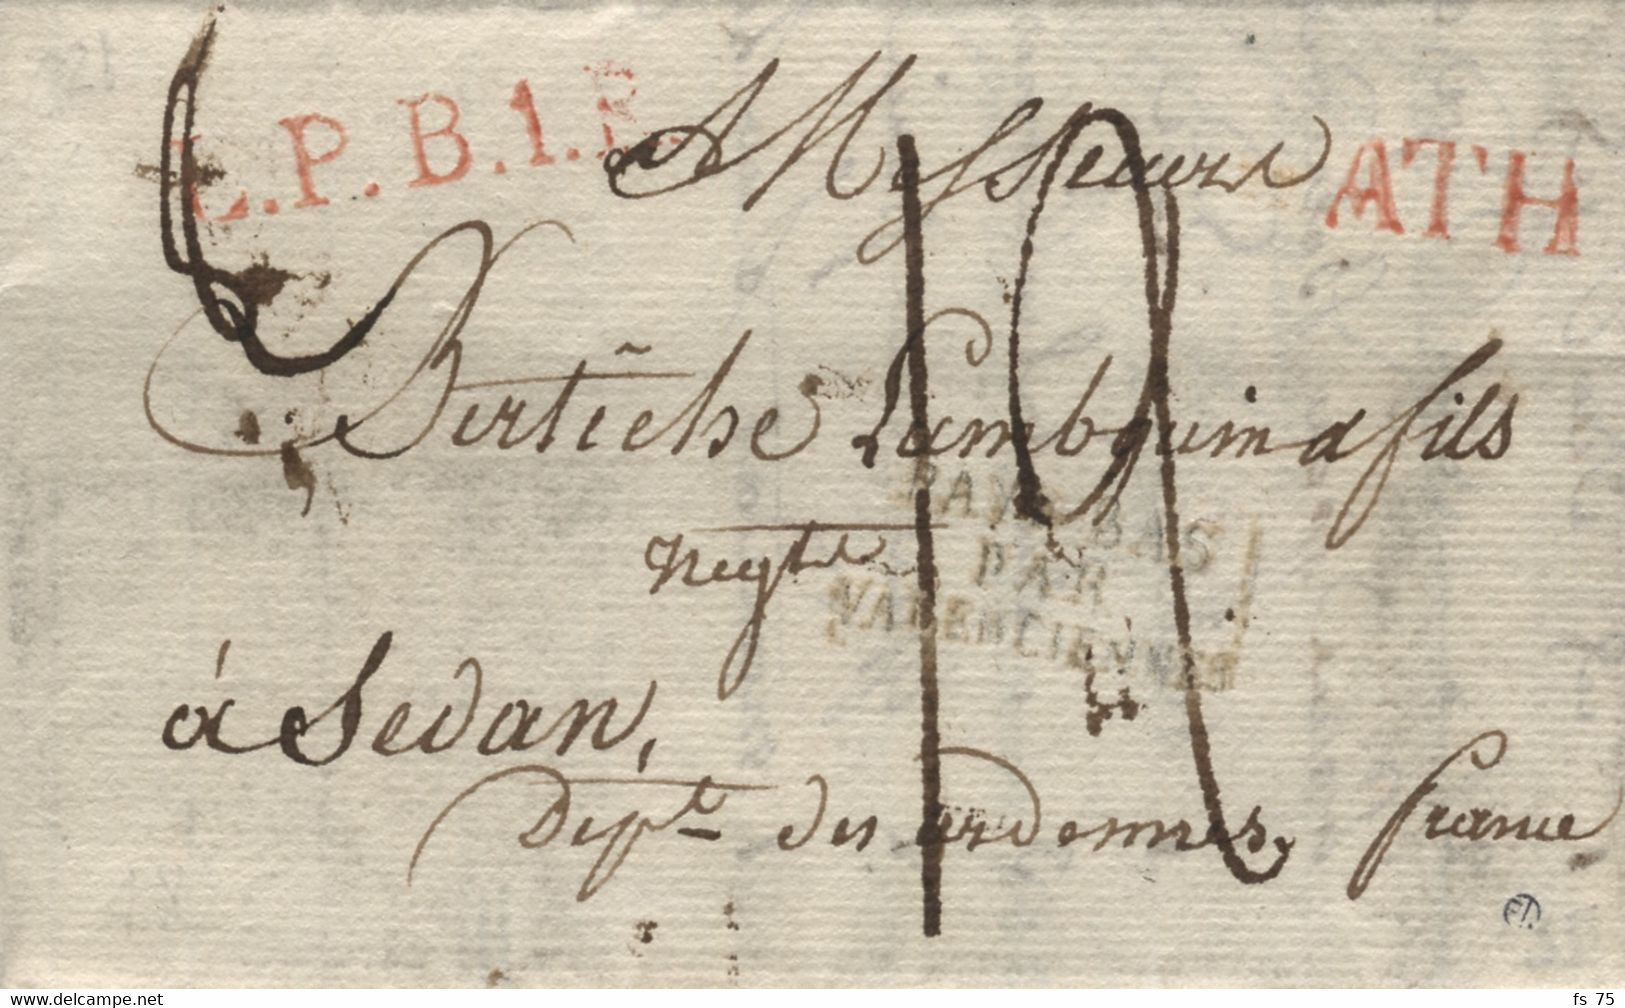 L.P.B.1.R.
ATH
A Messieurs
Bertèche Lambquin & fils
Negts
PAYS-BAS
PAR
VALENCIENNES
à Sedan,
Dept des Ardennes, france
www.delcampe.net
fs 75